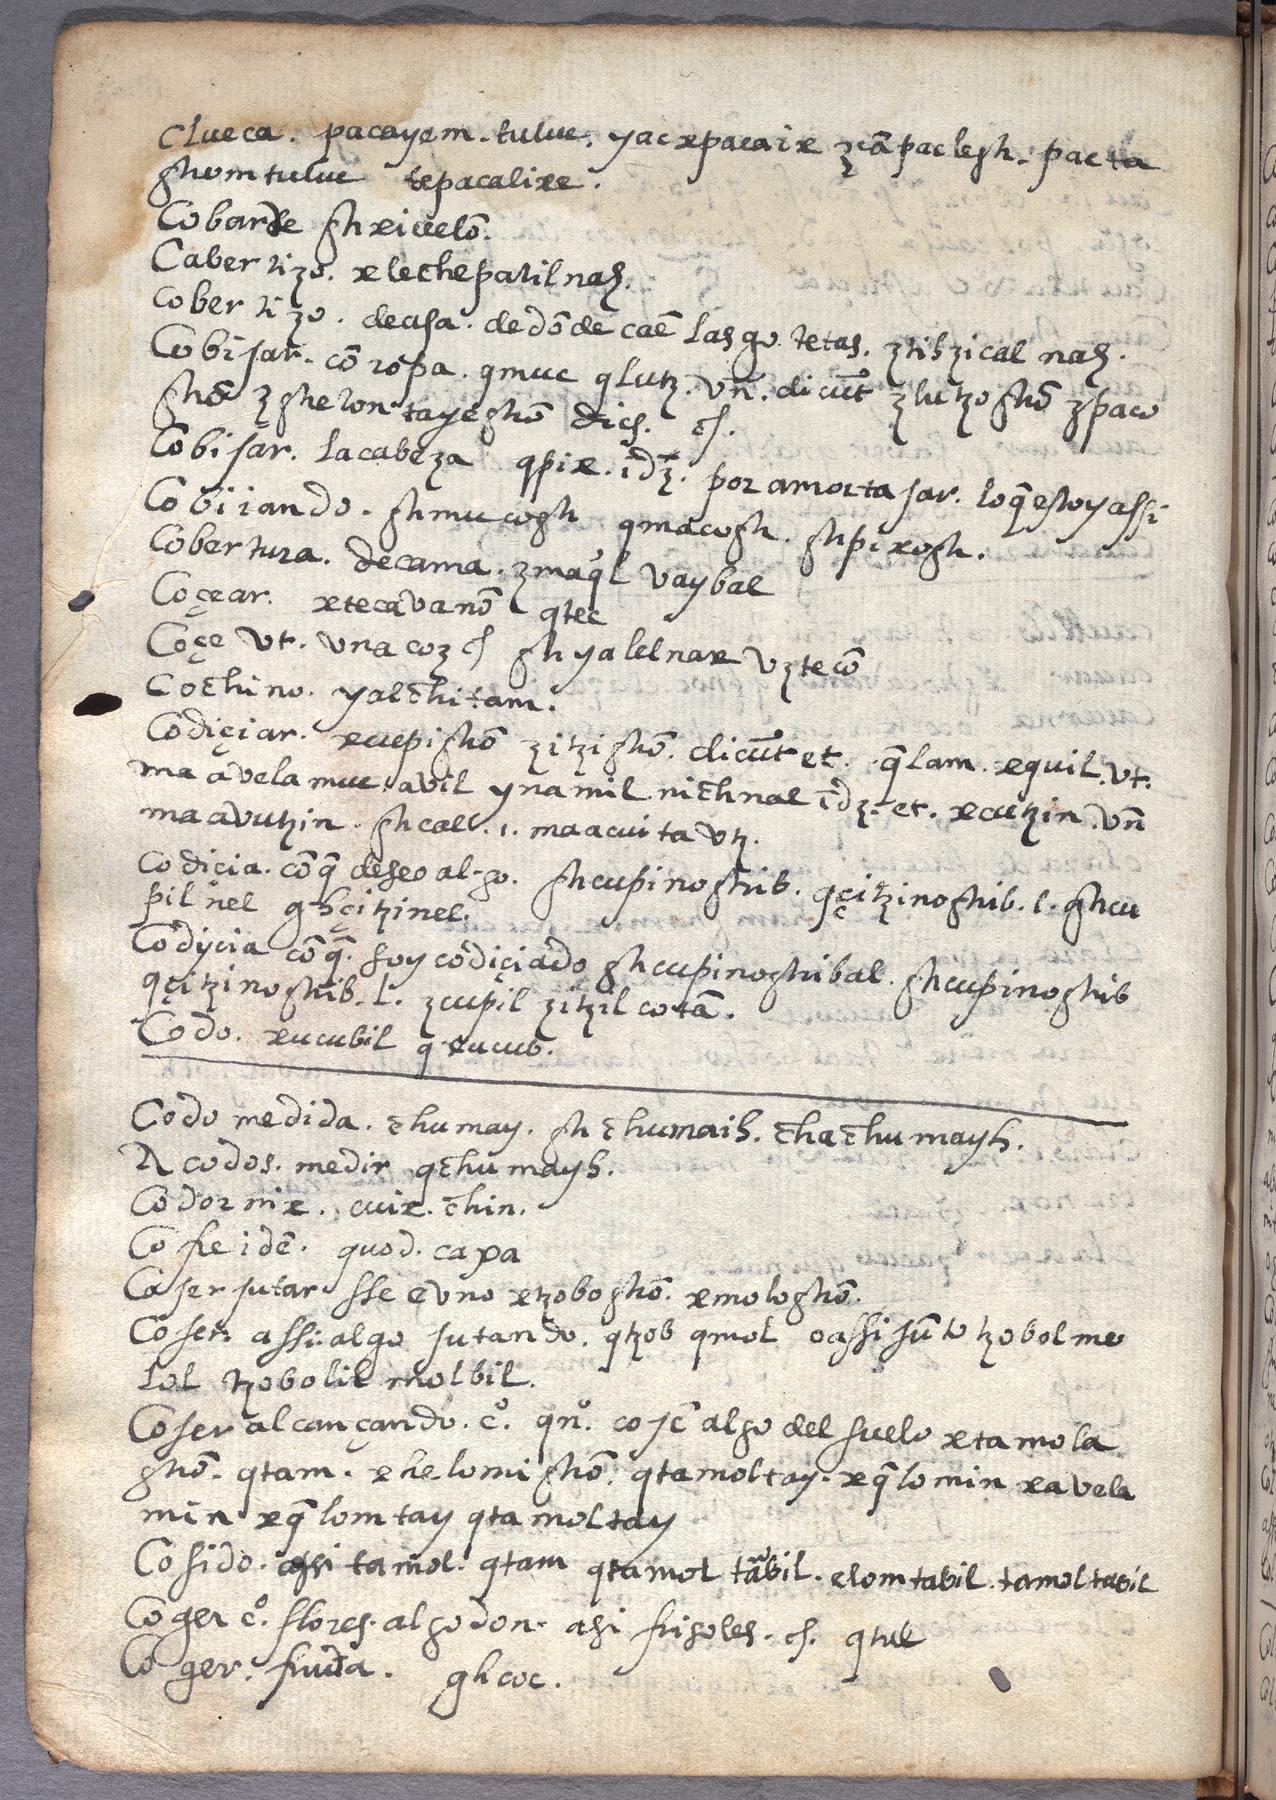 Clueca. pacayem. tulue. yacxpacaix zcã paclegh. pacta
ghomtulue tepacalixe.
Cobarde ghxiuelõ.
Cabertizo. xlechepatilnaꜧ.
Cobertizo. decasa. dedõde caẽ las gotetas. ztihzical naꜧ.
Cobijar. cõ ropa. qmuc qlutz. vn̄. dicũt zlutzoghõ zpaco
ghõ zghelon tayeghõ dics. &.
Cobijar. lacabeza qpix. idz. por amortajar. loq̃estoyassi
Cobiiando. ghmucogh qmacogh. ghpixogh.
Cobertura. decama. zmaq̃l vaybal
Coçear. xtecavanõ qtec
Coçe vt. vna coz & ghyalelnax vztecõ
Cochino. yalchitam.
Codiçiar. xcupighõ zitzighõ. dicũt et. q̃lam. xquil. vt.
ma avelamuc. avil ynamil nichnal idz. et. xcutzin. vn̄
ma avutzin. ghcal. i. maacuita vtz.
Codicia. cõq̃ deseo al-go. ghcupinoghib. qçitzinoghib. l. ghcu
pil nel ghçitzinel.
Codycia cõq̃. soy codiçiado ghcupinoghibal. ghcupinoghib
qçitzinoghib. l. zcupil zitzil cotã.
Codo. xucubil q xucub.
Codo medida. chumay. gh chumaih. chachumayh.
A codos. medir qchumayh.
Codornix. cuix. chin.
Cofre idẽ. quod. caxa
Cojer jutar sse e vno xtzoboghõ. xmologhõ.
Cojer assi algo jutando. qtzob qmol o assi jũto tzobol mo
lol tzobolil molbil.
Cojer alcançando. cº. qnº. cojẽ algo del suelo xtamola
ghõ. qtam. xhelomighõ. qtamoltay. xq̃lomin xavela
min xq̃lomtay qtamoltay
Cojido. assi tamol. qtam qtamol tãbil. elomtabil. tamoltabil
Coger cº. flores. algodon. asi frisoles. &. qtul
Coger. fruta. ghcoc.